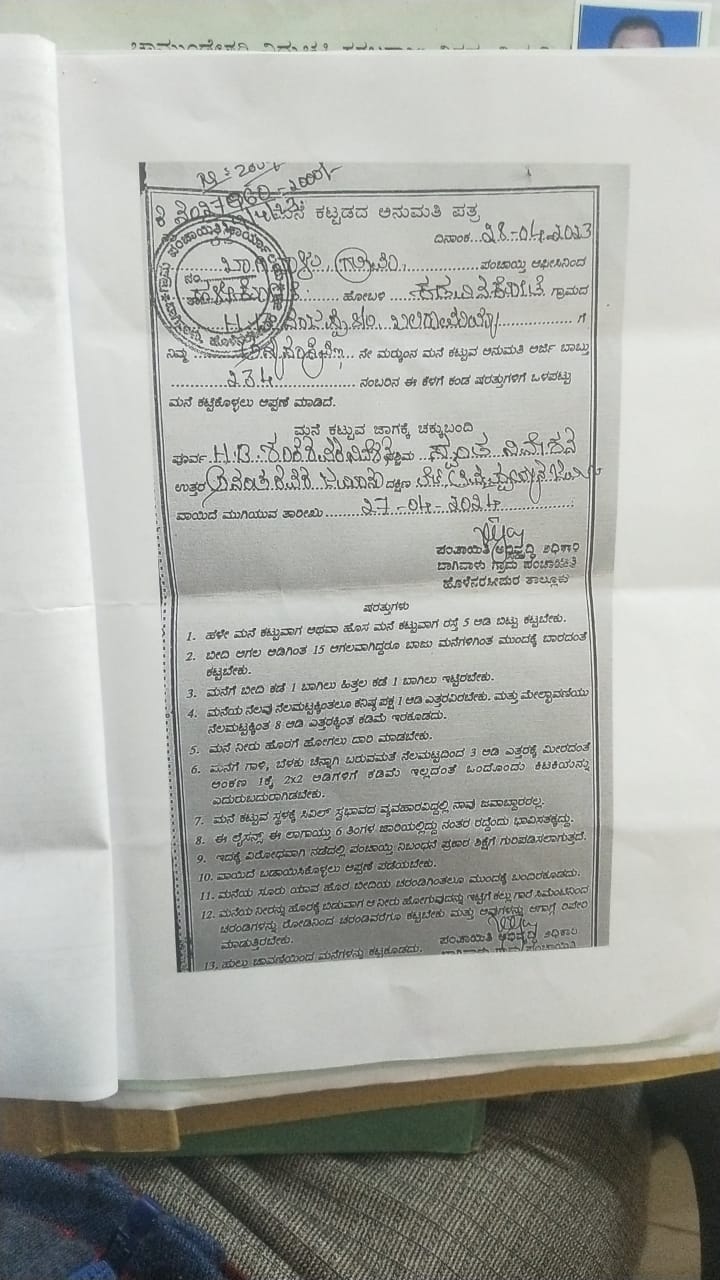 2000/-
ಮನೆ ಕಟ್ಟಡದ ಅನುಮತಿ ಪತ್ರ
ದಿನಾಂಕ...28-04-2023
ಗ್ರಾಮ ಪಂಚಾಯಿತಿ ಕಾರ್ಯಾಲಯ
ಪಂಚಾಯ್ತಿ ಆಫೀಸಿನಿಂದ
ಹೋಬಳಿ ಗ್ರಾಮದ
ಗೆ
ನಿಮ್ಮ ನೇ ಮರ್ಕುಂಸ ಮನೆ ಕಟ್ಟುವ ಅನುಮತಿ ಅರ್ಜಿ ಬಾಬ್ತು
234 ನಂಬರಿನ ಈ ಕೆಳಗೆ ಕಂಡ ಷರತ್ತುಗಳಿಗೆ ಒಳಪಟ್ಟು
ಮನೆ ಕಟ್ಟಿಕೊಳ್ಳಲು ಅಪ್ಪಣೆ ಮಾಡಿದೆ.
ಮನೆ ಕಟ್ಟುವ ಜಾಗಕ್ಕೆ ಚಕ್ಕುಬಂದಿ
ಪೂರ್ವ H.B. ಪಶ್ಚಿಮ ಸ್ವಂತ ನಿವೇಶನ
ಉತ್ತರ ದಕ್ಷಿಣ
ವಾಯಿದೆ ಮುಗಿಯುವ ತಾರೀಖು 27-04-2024
ಪಂಚಾಯಿತಿ ಅಭಿವೃದ್ಧಿ ಅಧಿಕಾರಿ
ಬಾಗಿವಾಳು ಗ್ರಾಮ ಪಂಚಾಯಿತಿ
ಹೊಳೆನರಸೀಪುರ ತಾಲ್ಲೂಕು
ಷರತ್ತುಗಳು
1. ಹಳೇ ಮನೆ ಕಟ್ಟುವಾಗ ಅಥವಾ ಹೊಸ ಮನೆ ಕಟ್ಟುವಾಗ ರಸ್ತೆ 5 ಅಡಿ ಬಿಟ್ಟು ಕಟ್ಟಬೇಕು.
2. ಬೀದಿ ಅಗಲ ಅಡಿಗಿಂತ 15 ಅಗಲವಾಗಿದ್ದರೂ ಬಾಜು ಮನೆಗಳಿಗಿಂತ ಮುಂದಕ್ಕೆ ಬಾರದಂತೆ
ಕಟ್ಟಬೇಕು.
3. ಮನೆಗೆ ಬೀದಿ ಕಡೆ 1 ಬಾಗಿಲು ಹಿತ್ತಲ ಕಡೆ 1 ಬಾಗಿಲು ಇಟ್ಟಿರಬೇಕು.
4. ಮನೆಯ ನೆಲವು ನೆಲಮಟ್ಟಕ್ಕಿಂತಲೂ ಕನಿಷ್ಠ ಪಕ್ಷ 1 ಅಡಿ ಎತ್ತರವಿರಬೇಕು. ಮತ್ತು ಮೇಲ್ಛಾವಣಿಯು
ನೆಲಮಟ್ಟಕ್ಕಿಂತ 8 ಅಡಿ ಎತ್ತರಕ್ಕಿಂತ ಕಡಿಮೆ ಇರಕೂಡದು.
5. ಮನೆ ನೀರು ಹೊರಗೆ ಹೋಗಲು ದಾರಿ ಮಾಡಬೇಕು.
6. ಮನೆಗೆ ಗಾಳಿ, ಬೆಳಕು ಚೆನ್ನಾಗಿ ಬರುವಮತೆ ನೆಲಮಟ್ಟದಿಂದ 3 ಅಡಿ ಎತ್ತರಕ್ಕೆ ಮೀರದಂತೆ
ಅಂಕಣ 1ಕ್ಕೆ 2x2 ಅಡಿಗಳಿಗೆ ಕಡಿಮೆ ಇಲ್ಲದಂತೆ ಒಂದೊಂದು ಕಿಟಕಿಯನ್ನು
ಎದುರುಬದುರಾಗಿಡಬೇಕು.
7. ಮನೆ ಕಟ್ಟುವ ಸ್ಥಳಕ್ಕೆ ಸಿವಿಲ್ ಸ್ವಭಾವದ ವ್ಯವಹಾರವಿದ್ದಲ್ಲಿ ನಾವು ಜವಾಬ್ದಾರರಲ್ಲ.
8. ಈ ಲೈಸನ್ಸ್ ಈ ಲಾಗಾಯ್ತು 6 ತಿಂಗಳ ಜಾರಿಯಲ್ಲಿದ್ದು ನಂತರ ರದ್ದೆಂದು ಭಾವಿಸತಕ್ಕದ್ದು.
9. ಇದಕ್ಕೆ ವಿರೋಧವಾಗಿ ನಡೆದಲ್ಲಿ ಪಂಚಾಯ್ತಿ ನಿಬಂಧನೆ ಪ್ರಕಾರ ಶಿಕ್ಷೆಗೆ ಗುರಿಪಡಿಸಲಾಗುತ್ತದೆ.
10. ವಾಯಿದೆ ಬಡಾಯಿಸಿಕೊಳ್ಳಲು ಅಪ್ಪಣೆ ಪಡೆಯಬೇಕು.
11. ಮನೆಯ ಸೂರು ಯಾವ ಹೊರ ಬೀದಿಯ ಚರಂಡಿಗಿಂತಲೂ ಮುಂದಕ್ಕೆ ಬಂದಿರಕೂಡದು.
12. ಮನೆಯ ನೀರನ್ನು ಹೊರಕ್ಕೆ ಬಿಡುವಾಗ ಆ ನೀರು ಹೋಗುವುದನ್ನು ಇಟ್ಟಿಗೆ ಕಲ್ಲು ಗಾರೆ ಸಿಮೆಂಟಿನಿಂದ
ಚರಂಡಿಗಳನ್ನು ರೋಡಿನಿಂದ ಚರಂಡಿವರೆಗೂ ಕಟ್ಟಬೇಕು ಮತ್ತು ಅವುಗಳನ್ನು ಆಗಾಗ್ಗೆ ರಿಪೇರಿ
ಮಾಡುತ್ತಿರಬೇಕು.
ಪಂಚಾಯಿತಿ ಅಭಿವೃದ್ಧಿ ಅಧಿಕಾರಿ
13. ಹುಲ್ಲು ಚಾವಣಿಯಿಂದ ಮನೆಗಳನ್ನು ಕಟ್ಟಕೂಡದು.